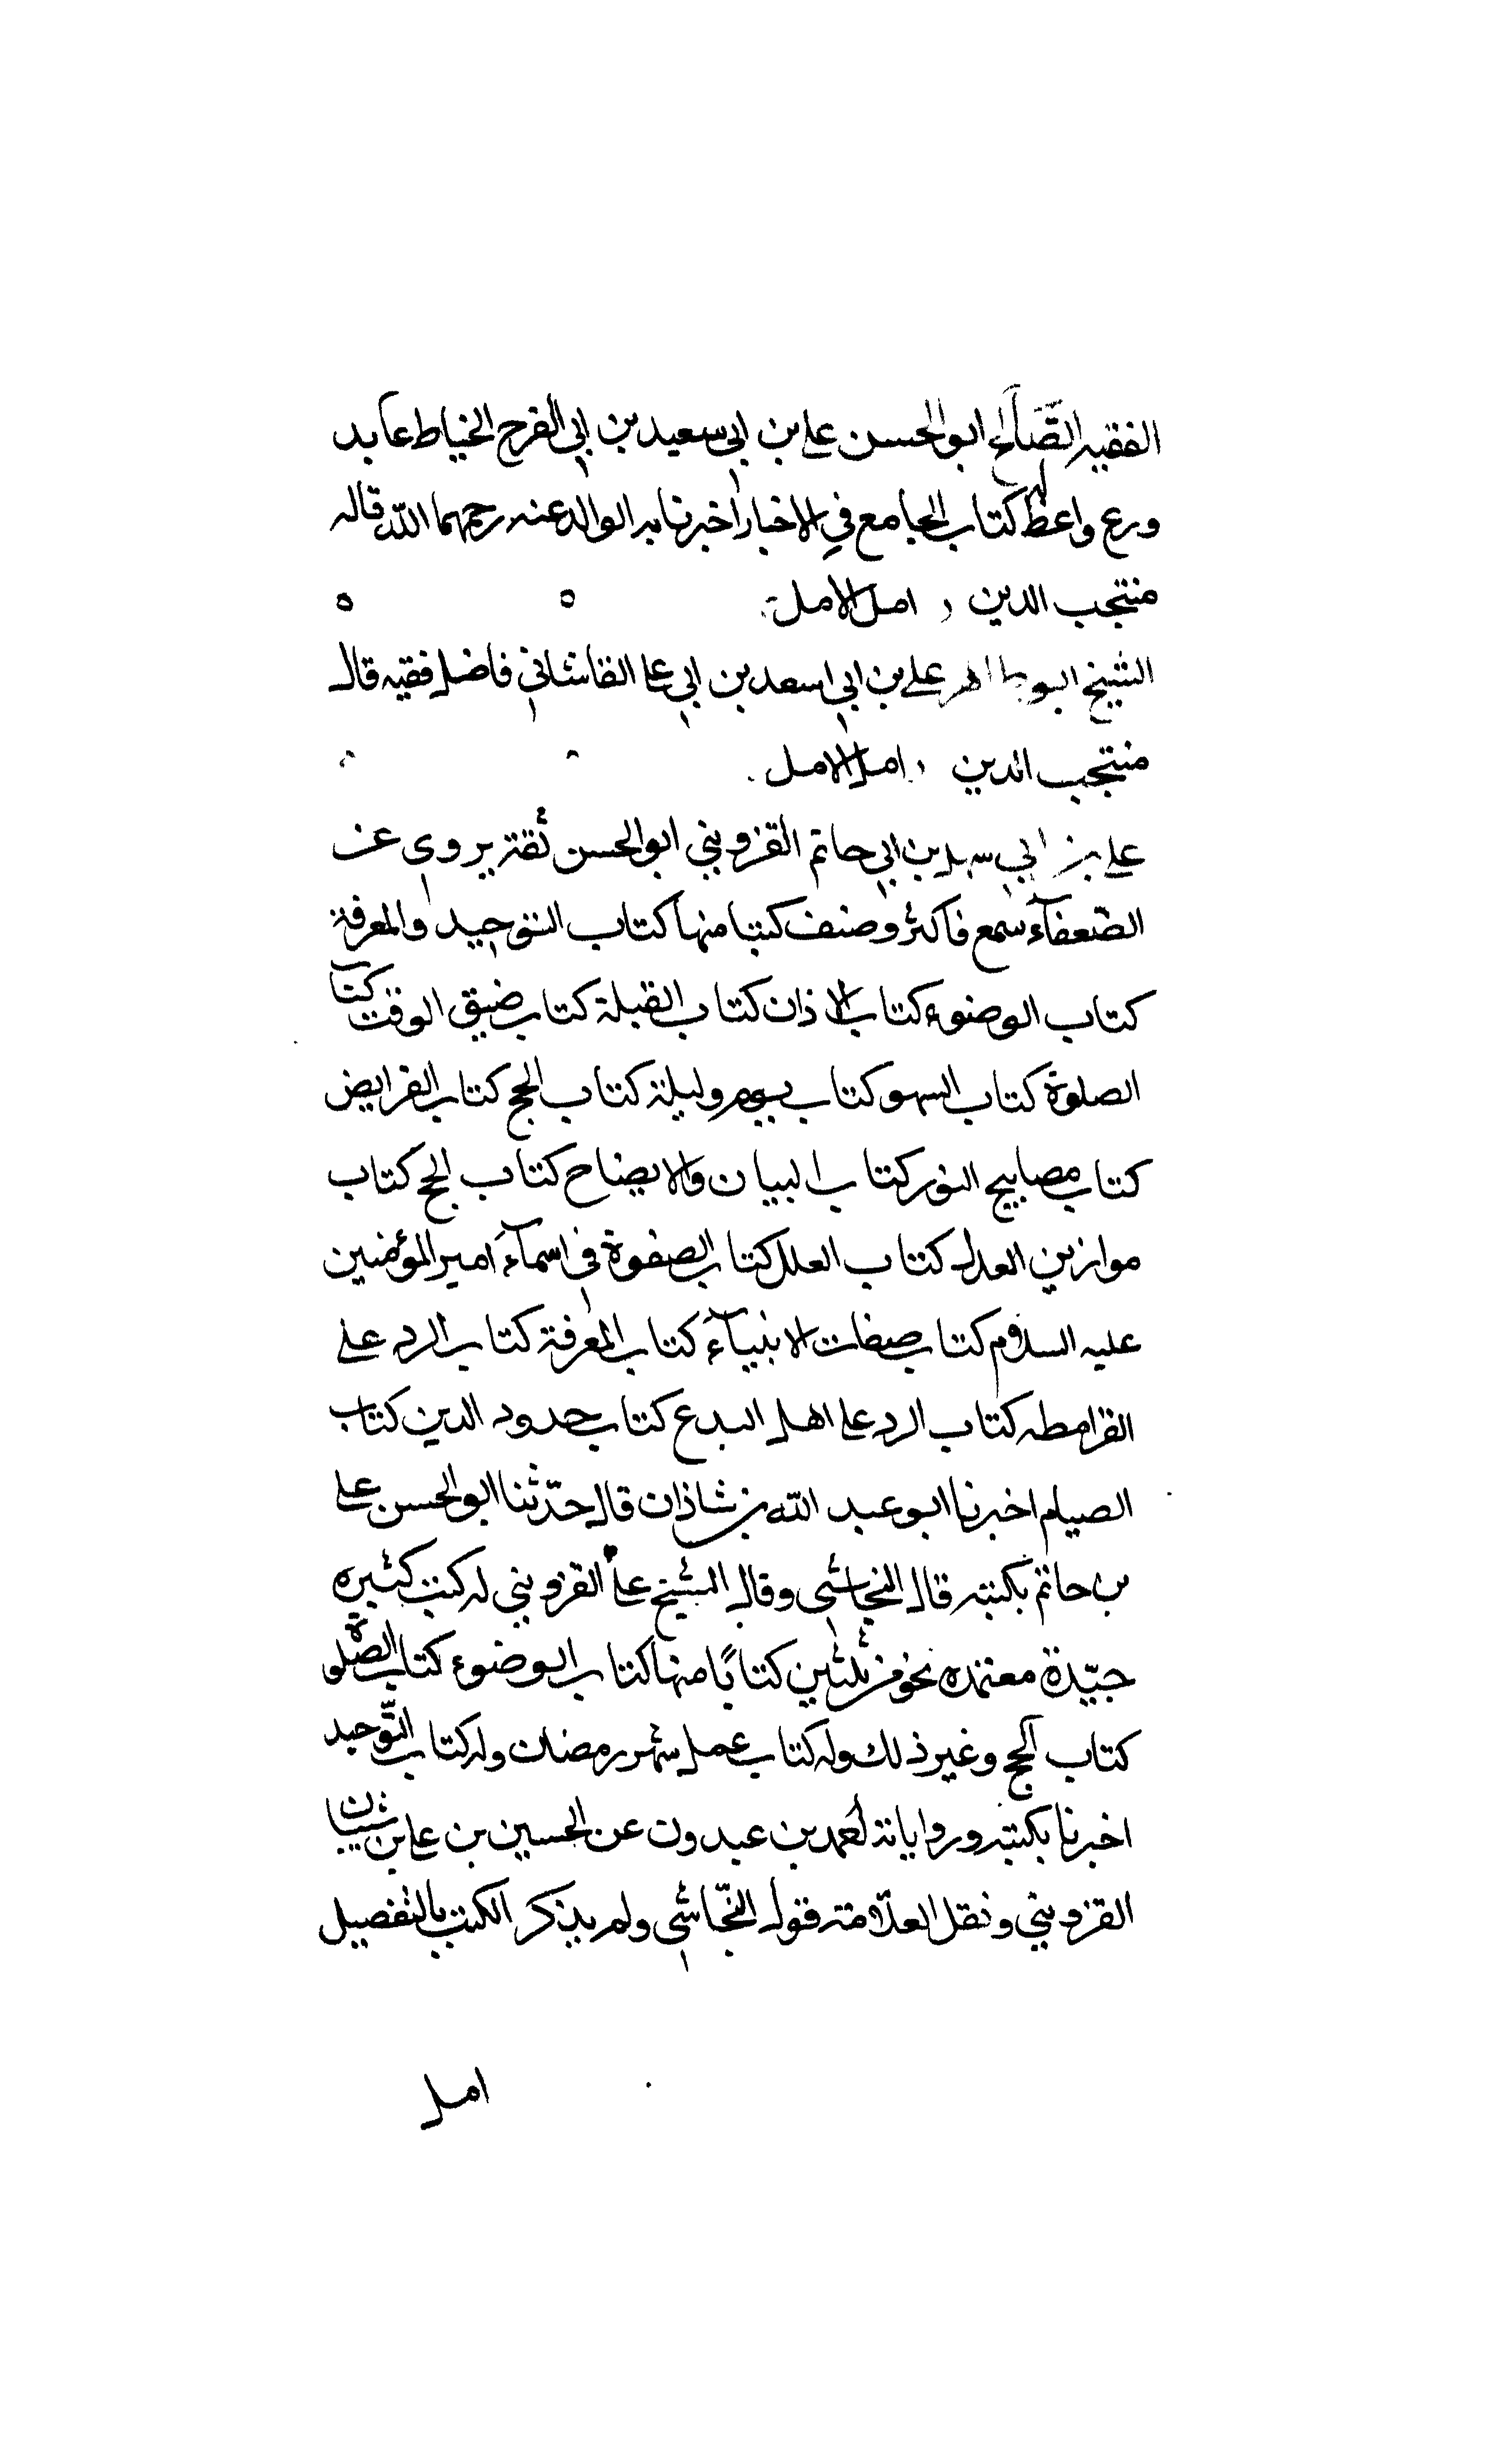 الفقيه الصَّالح ابو الحسن على بن ابى سعيد بن ابى الفرج الخياط عابد
ورع واعظ له كتاب الجامع في الاخبار اخبرنا به الوالد عنه رحمهما اللّه قاله
منتجب الدين ، امل الامل
الشيخ ابو طاهر على بن ابى اسعد بن ابى على القاشانى فاضل فقيه قال
منتجب الدين ، امل الامل
على بن ابى سهل بن ابى حاتم القزوينى ابو الحسن ثقة يروى عن
الضعفآء سمع فاكثر وصنف كتبا منها كتاب التوحيد والمعرفة
كتاب الوضوء كتاب الاذان كتاب القبلة كتاب ضيق الوقت كتاب
الصلوة كتاب السهو كتاب يوم وليلة كتاب الحج كتاب الفرايض
كتاب مصابيح النور كتاب البيان والايضاح كتاب الحج كتاب
موازين العدل كتاب العلل كتاب الصفوة فى اسمآء امير المؤمنين
عليه السلام كتاب صفات الانبيآء كتاب المعرفة كتاب الرد على
القرامطه كتاب الرد على اهل البدع كتاب حدود الدين كتاب
الصيام اخبرنا ابو عبد اللّه بن شاذان قال حدّثنا ابو الحسن على
بن حاتم بكتبه قال النجاشى وقال الشيخ على القزوينى له كتب كثيره
جيّدة معتمده نحو من ثلثين كتابًا منها كتاب الوضوء كتاب الصّلوة
كتاب الحج وغير ذلك وله كتاب عمل شهر رمضان وله كتاب التّوحيد
اخبرنا بكتبه ورواياته احمد بن عبدون عن الحسين بن على بن شيبان
القزوينى ونقل العلّامة قول النّجاشى ولم يذكر الكتب بالتفصيل
امل